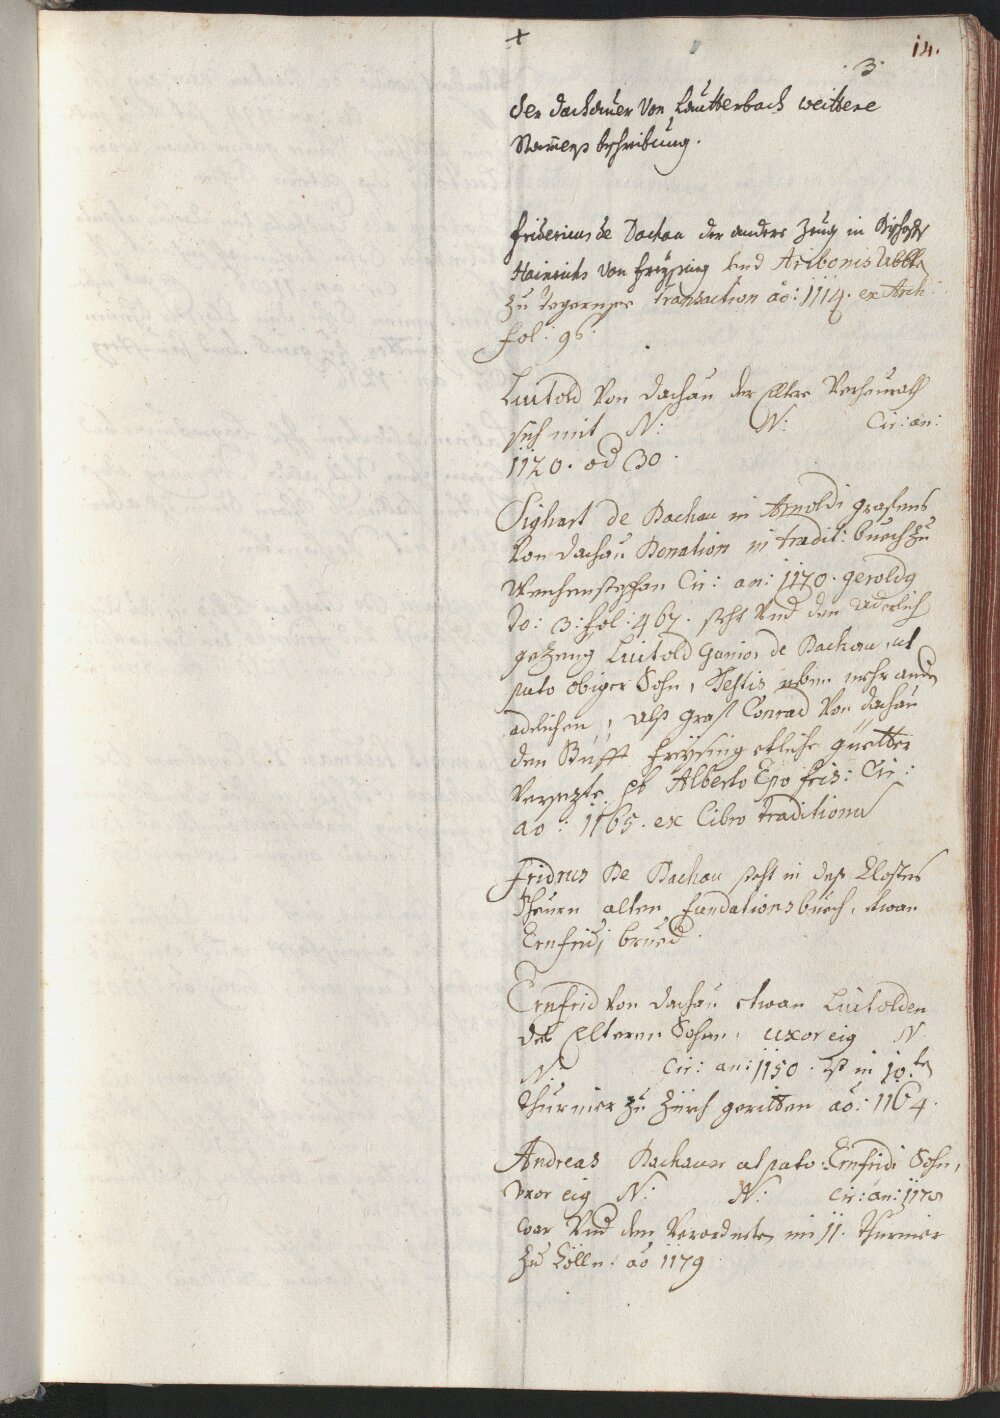 +
14.
.3.
der Dachauer von Lautterbach weittere
Stamens beschreibung.
Fridericus de Dachau der andere Zeug in Bischoffs
Hainrichs von Freysing und Aribonis Abbten
zu Tegernsee Transaction ao: 1114. ex Arch:
fol: 96.
Luitold von Dachau der Eltere Verheurath
sich mit N: N: Cir: an:
1120. od 30.
Sighart de Dachau in Arnoldi grafens
von Dachau Donation in tradit: buech zu
Weichenstephan Cir: an: 1170. geroldg
To: 3: fol: 467. steht Und den Aderlich
gezeug Luitold Junior de Dachau, ut
puto obiger Sohn, Testis neben mehr andn
adelichen, alss Graf Conrad von Dachau
den Stifft Freysing etliche güetter
versezte sb Alberto Epo fris: Cir:
ao: 1165. ex Libro traditionu
Fridrus De Dachau steht in dess Closters
Scheurn alten fundationsbuech, etwan
Ernfridi brued.
Ernfrid von Dachau etwan Luitolden
des Elteren Sohn, uxor eig N
N: Cir: an: 1150. ist in 10.ten
Thurnier zu Zürch geritten ao: 1164.
Andreas Dachauer ut puto Ernfridi Sohn,
Uxor eig N: N: Cir: an: 1170
war Und den Verordneten im 11. Thurnier
zu Cölln. ao 1179